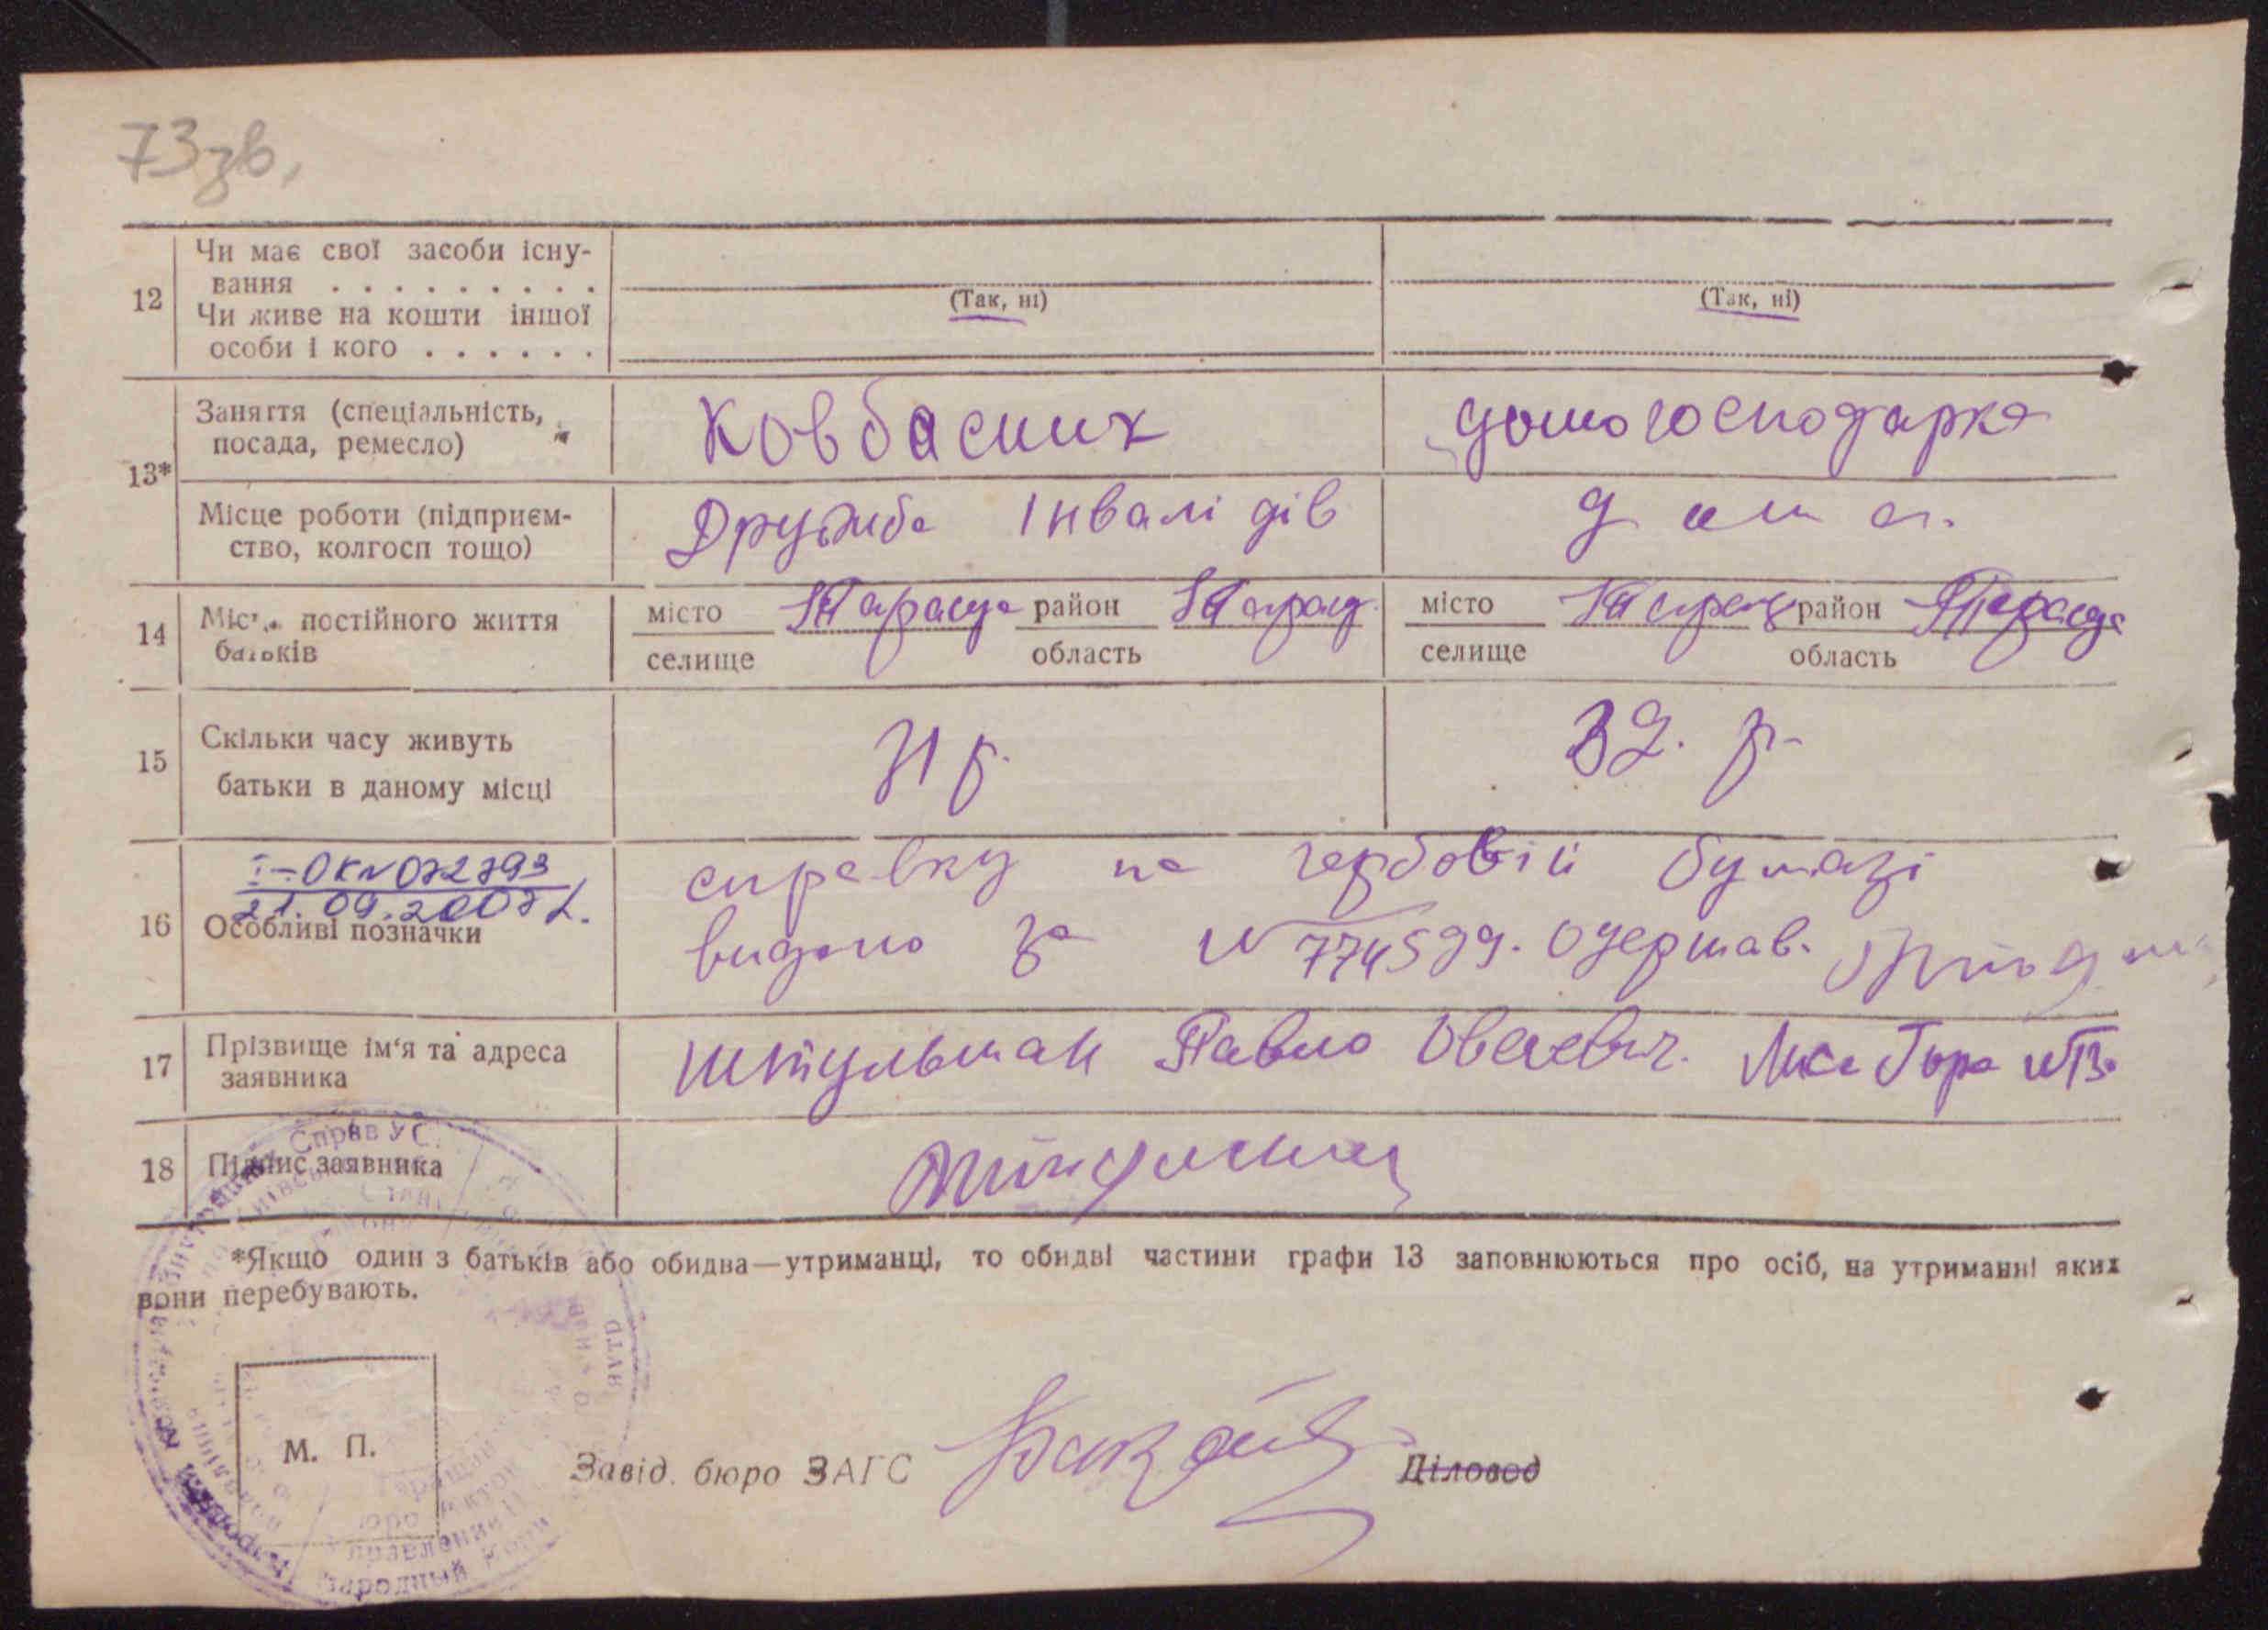 73зв.
12
Чи має свої засоби існу-
вання . . . . . . . . .
Чи живе на кошти іншої
особи і кого . . . . . .
(Так, ні)
(Так, ні)
13*
Заняття (спеціальність,
посада, ремесло)
Ковбасник
домогосподарка
Місце роботи (підприєм-
ство, колгосп тощо)
Дружба Інвалідів
дома.
14
Місце постійного життя
батьків
місто Тараща район Таращ.
селище область
місто Таращ район Тараща
селище область
15
Скільки часу живуть
батьки в даному місці
31 р.
32. р.
16
I-ОК №072793
21.09.2007
Особливі позначки
справку на гербовій бумазі
видано за №774599. Одержав.
17
Прізвище ім'я та адреса
заявника
Штульман Павло Овсеевич. Лиса Гора №13.
18
Підпис заявника
*Якщо один з батьків або обидва—утриманці, то обидві частини графи 13 заповнюються про осіб, на утриманні яких
вони перебувають.
М. П.
Завід. бюро ЗАГС
Діловод